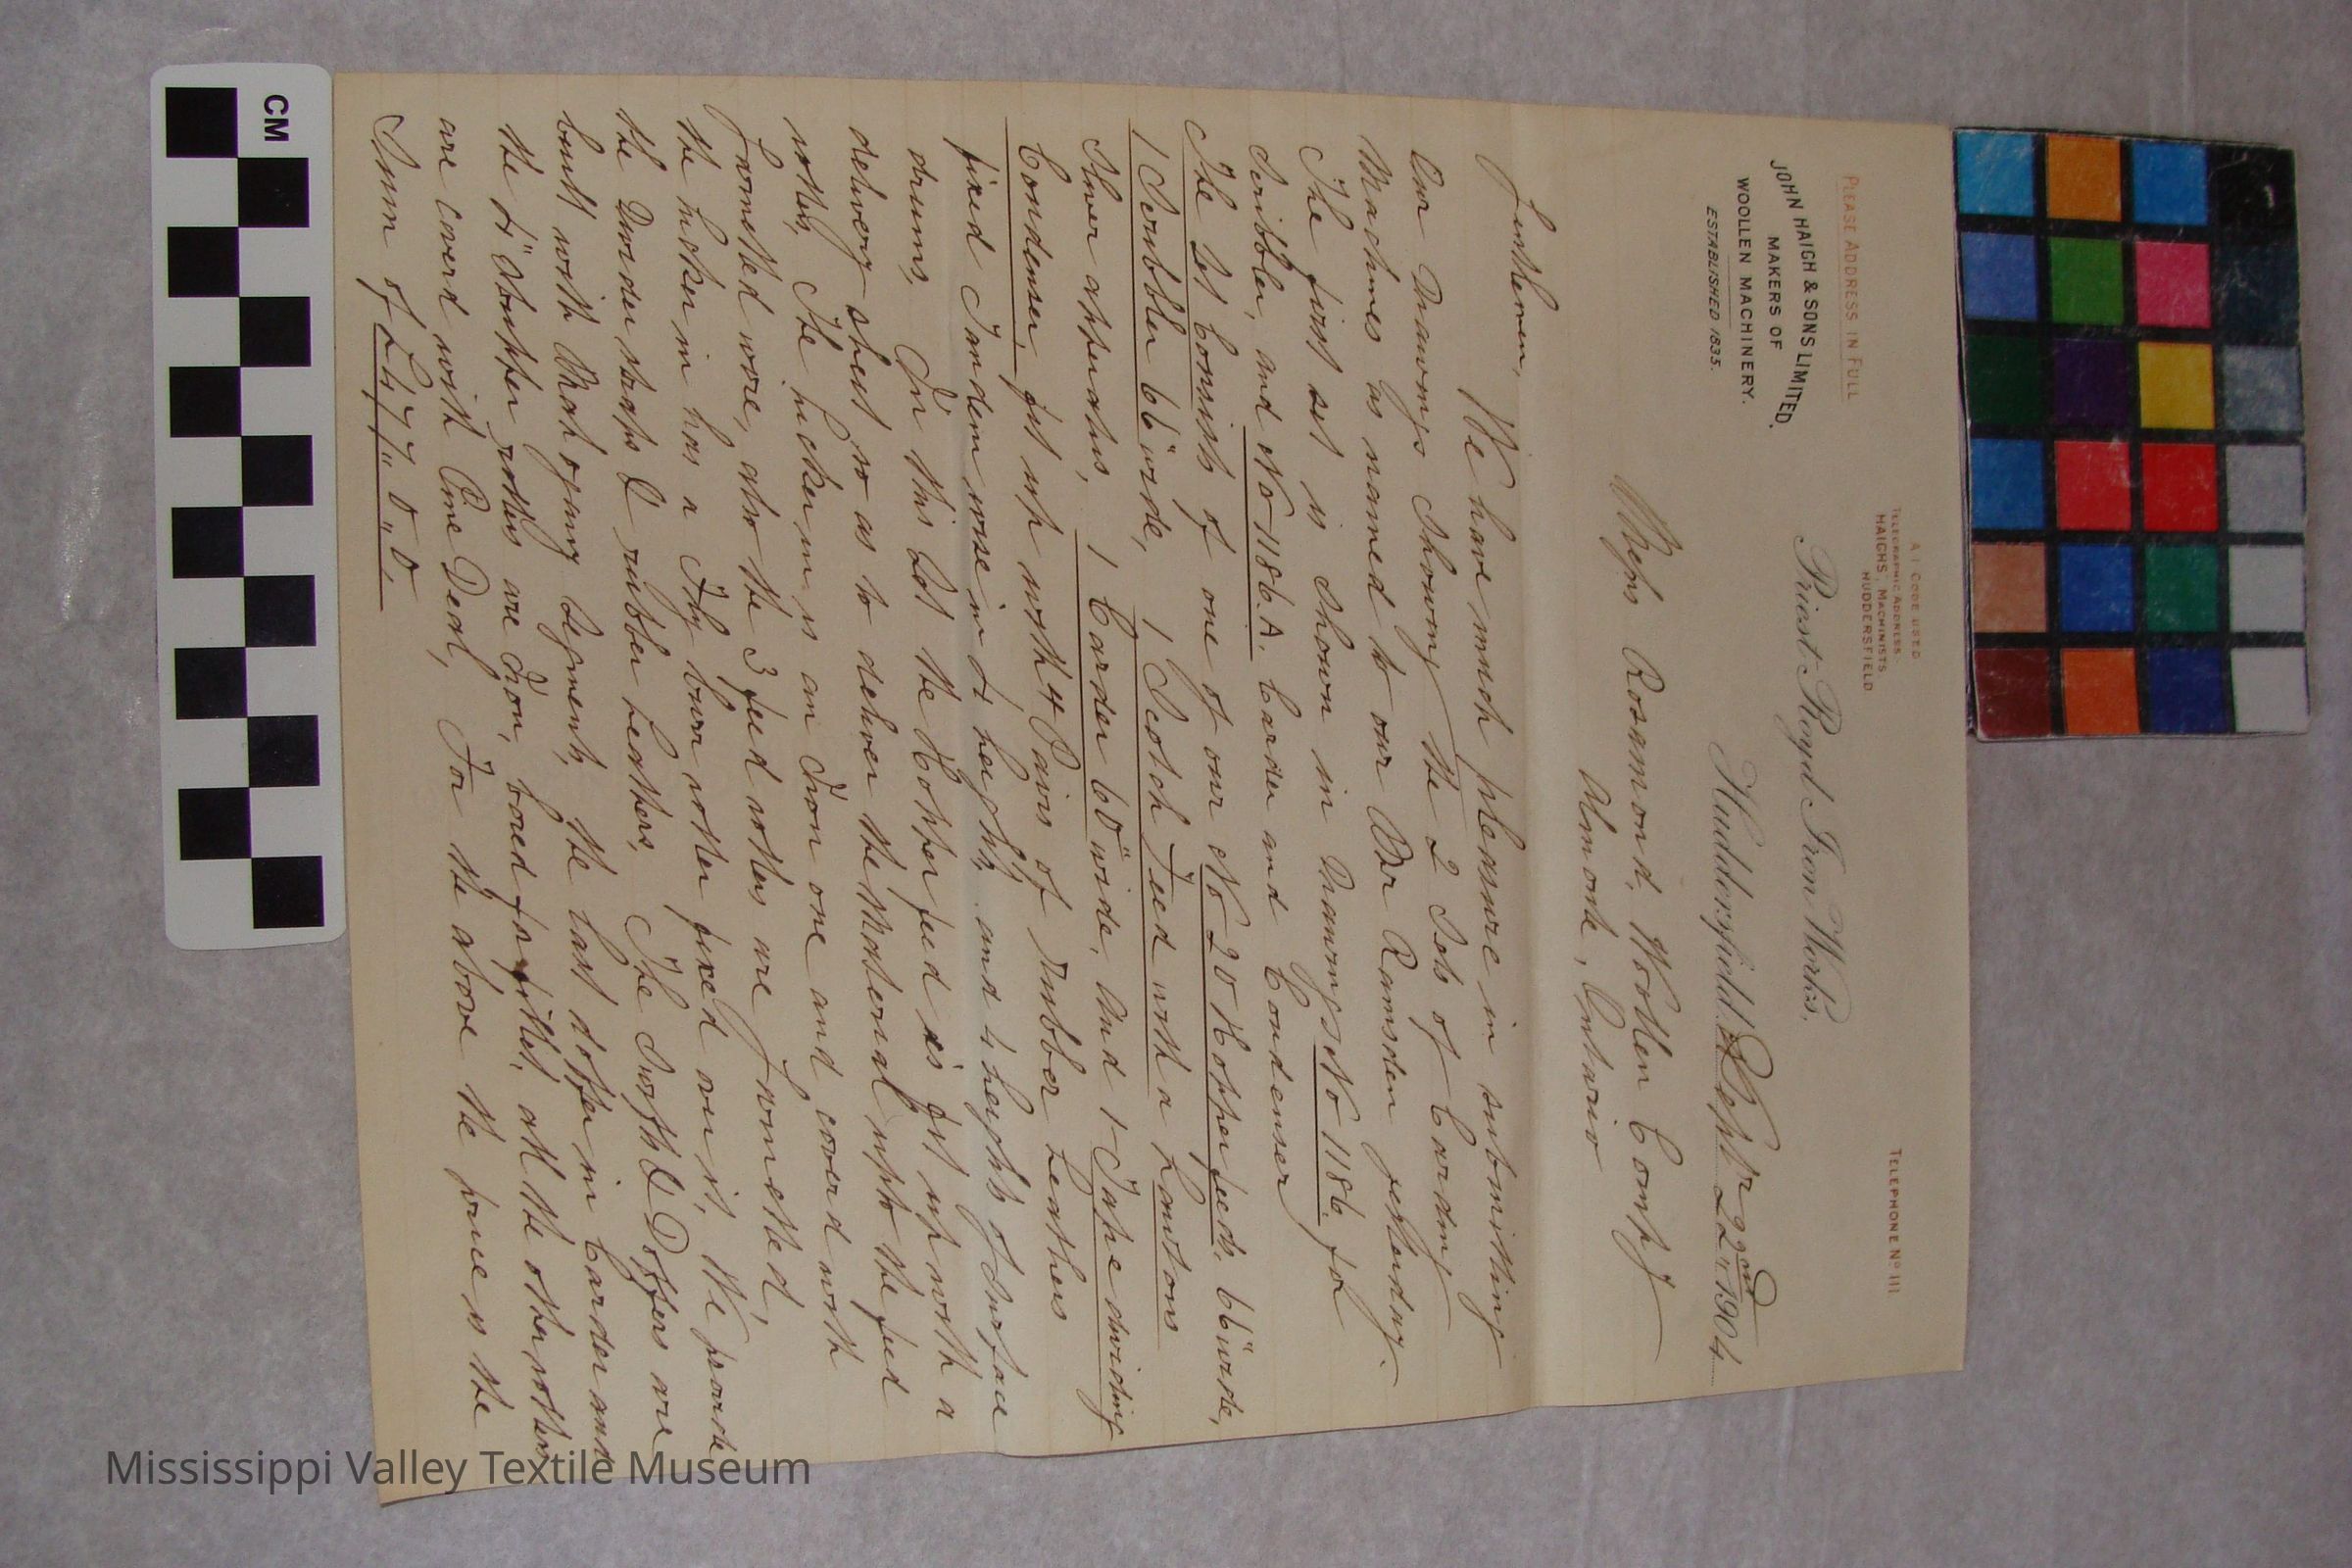 A I CODE USED
TELEGRAPHIC ADDRESS:
HAIGHS, MACHINISTS
HUDDERSFIELD
TELEPHONE Nº 111
PLEASE ADDRESS IN FULL
JOHN HAIGH & SONS LIMITED.
MAKERS OF
WOOLLEN MACHINERY.
ESTABLISHED 1835.
Priest Royd Iron Works,
Huddersfield Septr 22nd 1904
Messrs Rosamond, Woollen Compy
Almonte, Ontario
Gentlemen,
We have much pleasure in submitting
our Drawings Showing the 2 Sets of Carding
Machines as named to our Mr Ramsden yesterday.
The first set is shown in Drawings No 1186. for
Scribbler, and No 1186.A. Carder and Condenser
The Set Consists of one of our No 20 Hopper feeds, 66" wide,
1 Scribbler 66" wide, 1 Scotch Feed with a Lawtons
Sliver apparatus, 1 Carder 60" wide, And 1 Tape dividing
Condenser, fit up with 4 Pairs of Rubber Leathers
fixed Tandem wise in 2 heights, and 4 heights of Surface
drums, In this Set the Hopper feed is fit up with a
delivery sheet so as to deliver the Material upto the feed
rollers, The lickerin is an Iron one and coverd with
Garnetted wire, also the 3 feed rollers are Garnetted,
the lickerin has a Fly burr roller fixed over it, We provide
the Divider straps & rubber leathers, The Swifts & Doffers are
built with Mahogany Segments, the last doffer in Carder and
the 4" Stripper rollers are Iron, bored for fillet, all the other rollers
are coverd with Pine Deal, For the above the price is the
Sum of £477" 0" 0.
CM
Mississippi Valley Textile Museum